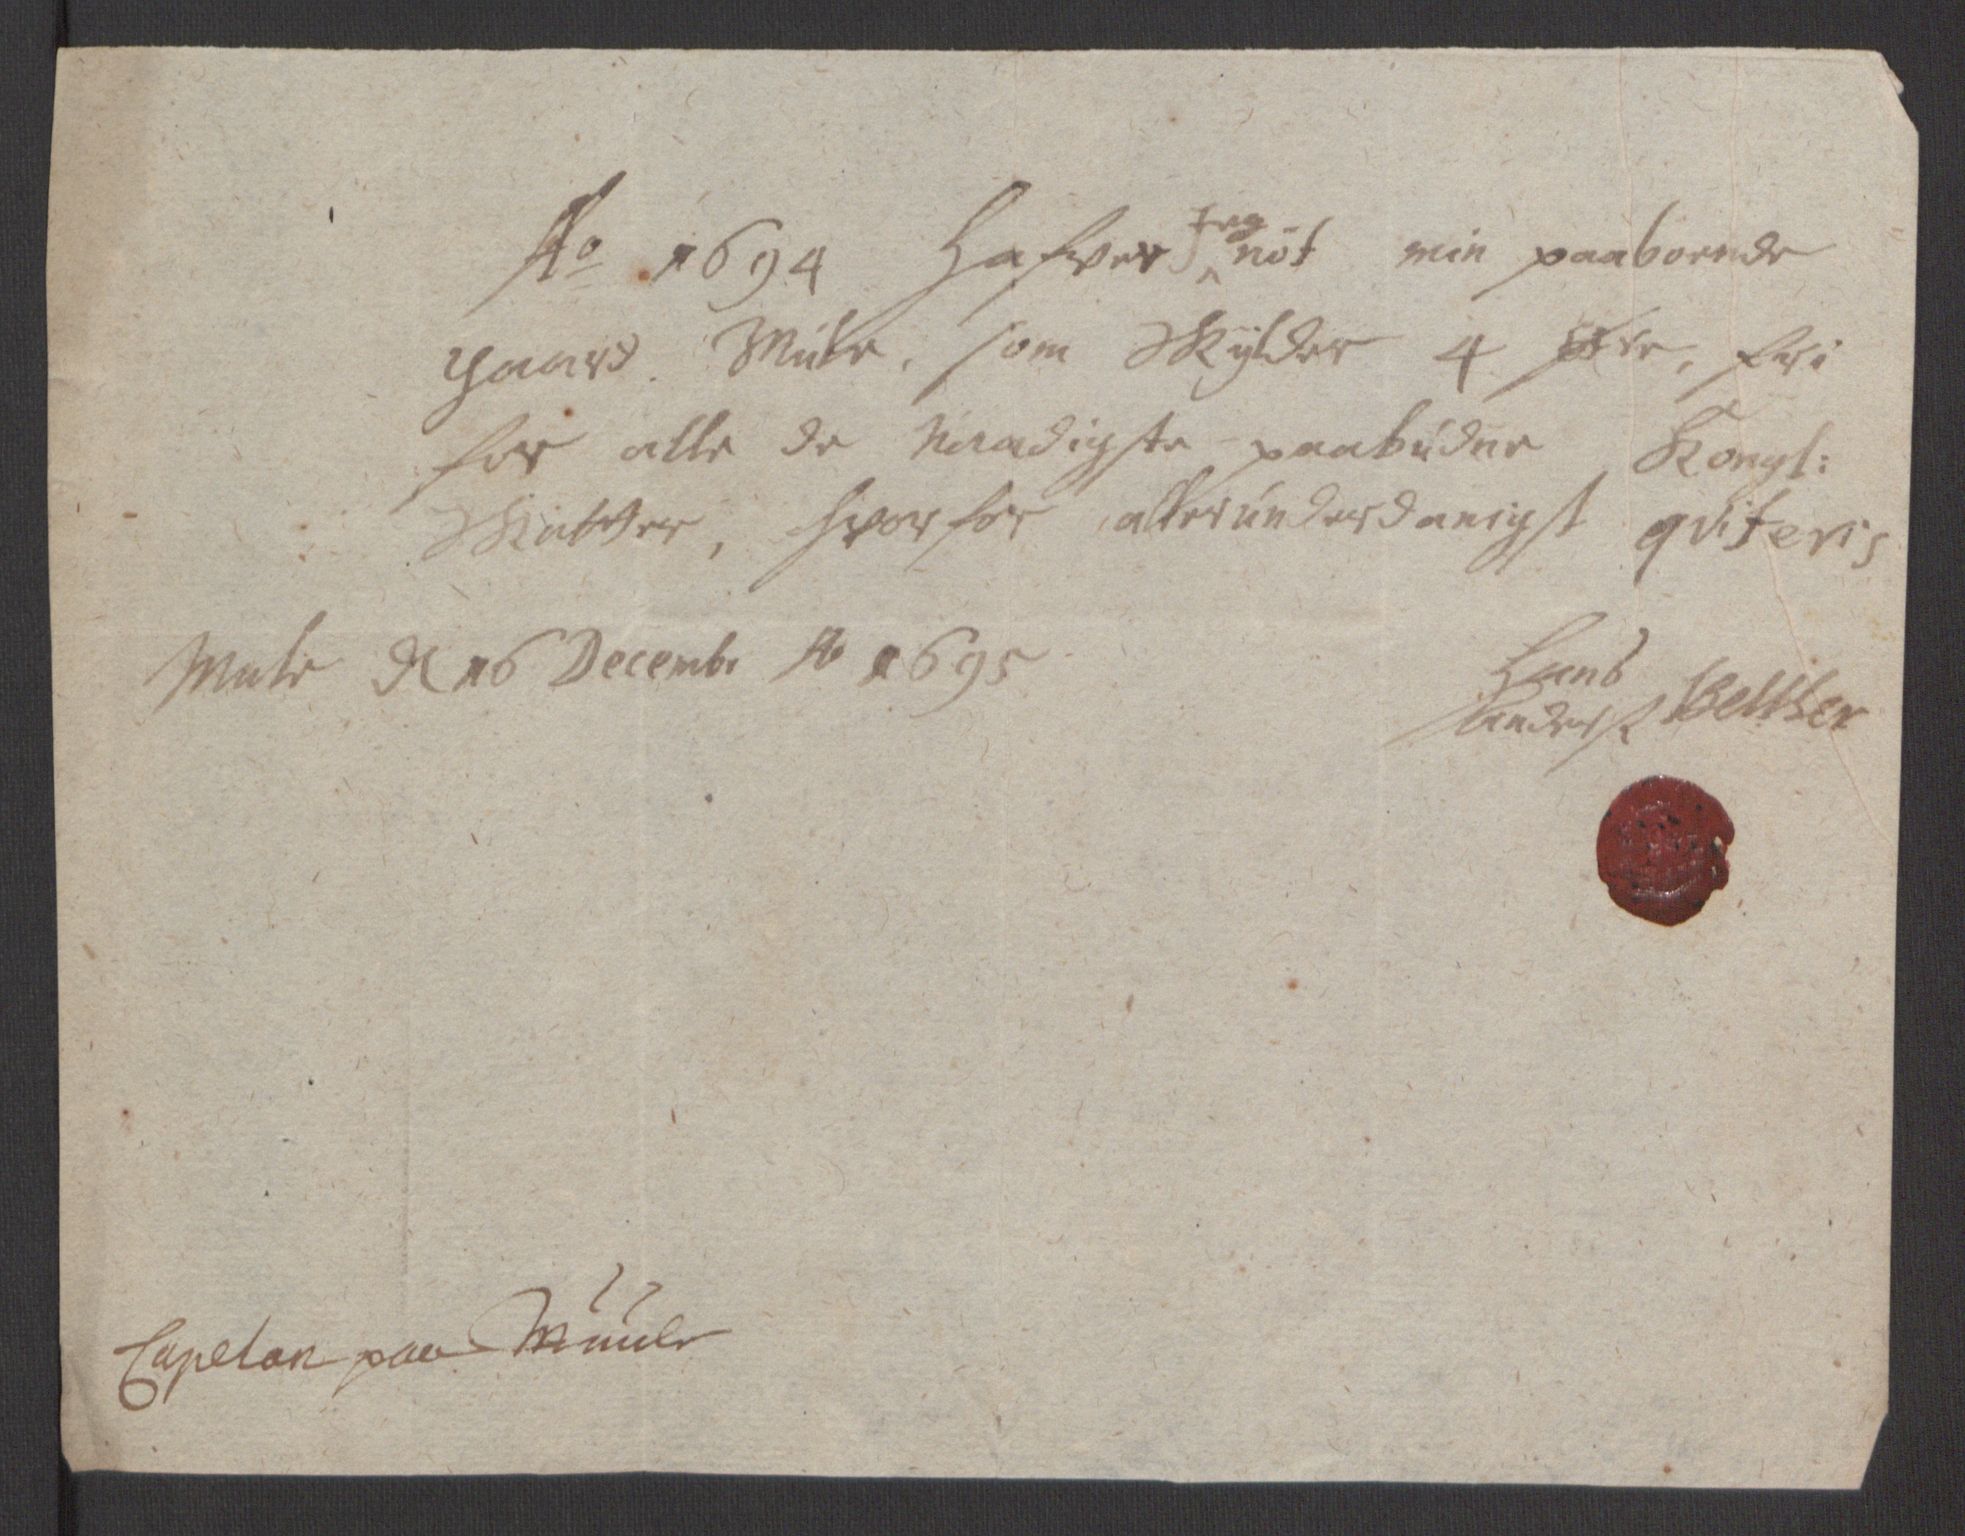 Ao 1694 Hafver Jeg nöt min paaboende
gaard Mule, som Skylder 4 Øre, fri
for alle de Naadigste paabudne Kongl:
Skatter, hvorfor allerúnderdanigst qviteris
Mule d 16 Decembr Ao 1695
Hans
Anders:
Capelan paa Muule